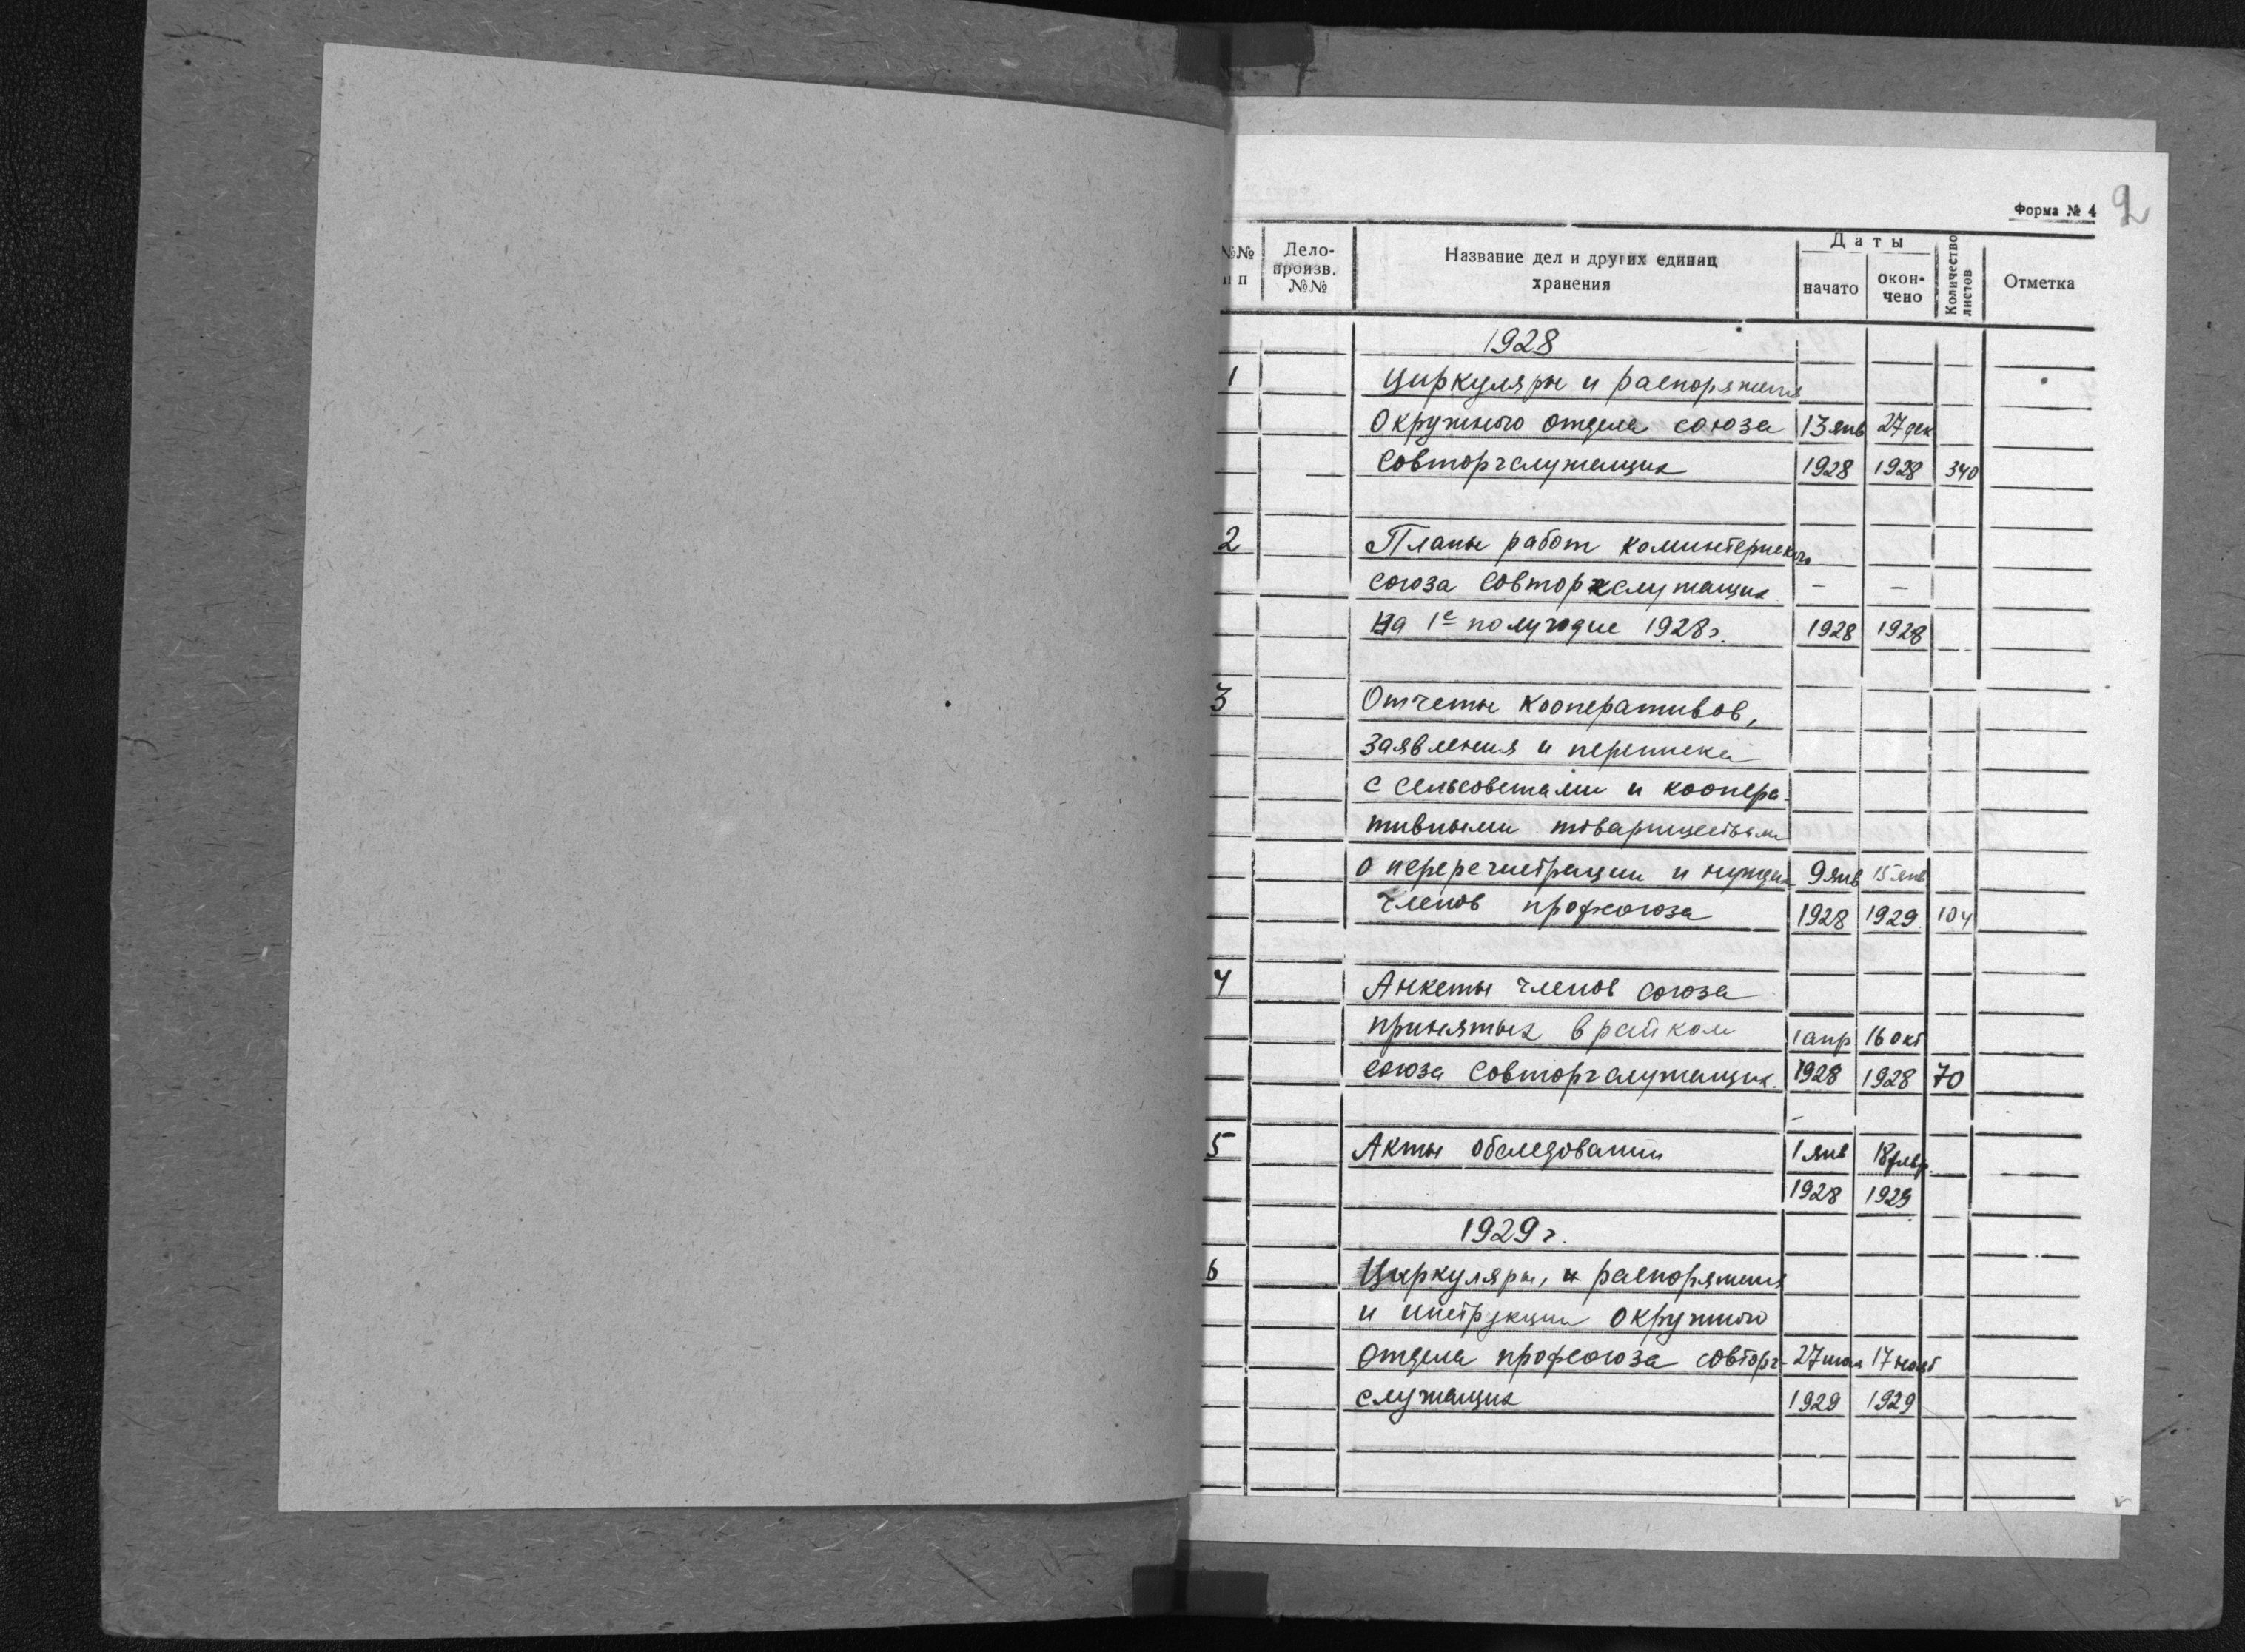 Форма № 4
2
№№ п п
Дело-произв. №№
Название дел и других единиц хранения
Даты
начато
окон-чено
Количество листов
Отметка
1928
1 Циркуляры и распоряжения
Окружного отдела союза 13 янв 27 дек
Совторгслужащих 1928 1928 340
2 Планы работ коминтерновского
союза Совторгслужащих. – –
на 1е полугодие 1928 г. 1928 1928
3 Отчеты кооперативов,
заявления и переписка
с сельсоветами и коопера-
тивными товариществами
о перерегистрации и нуждах 9 янв 15 янв
членов профсоюза 1928 1929. 104
4 Анкеты членов союза
принятых в райком 1 апр 16 окт
союза Совторгслужащих. 1928 1928 70
5 Акты обследований 1 янв 18 февр.
1928 1929
1929 г.
6 Циркуляры, распоряжения
и инструкции Окружного
отдела профсоюза совторг- 17 нояб
служащих 1929 1929